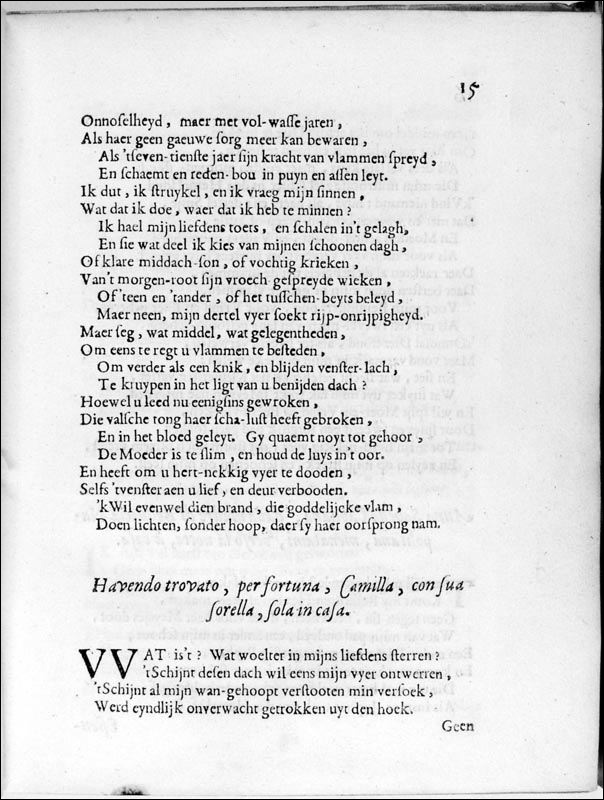 15
Onnoselheyd, maer met vol-wasse jaren,
Als haer geen gaeuwe sorg meer kan bewaren,
Als 'tseven-tienste jaer sijn kracht van vlammen spreyd,
En schaemt en reden-bou in puyn en assen leyt.
Ik dut, ik struykel, en ik vraeg mijn sinnen,
Wat dat ik doe, waer dat ik heb te minnen?
Ik hael mijn liefdens toers, en schalen in't gelagh,
En sie wat deel ik kies van mijnen schoonen dagh,
Of klare middach-son, of vochtig krieken,
Van't morgen-root sijn vroech-gespreyde wieken,
Of 'teen en 'tander, of het tusschen-beyts beleyd,
Maer neen, mijn dertel vyer soekt rijp-onrijpigheyd.
Maer seg, wat middel, wat gelegentheden,
Om eens te regt u vlammen te besteden,
Om verder als een knik, en blijden venster-lach,
Te kruypen in het ligt van u benijden dach?
Hoewel u leed nu eenigsins gewroken,
Die valsche tong haer scha-lust heeft gebroken,
En in het bloed geleyt. Gy quaemt noyt tot gehoor,
De Moeder is te slim, en houd de luys in't oor.
En heeft om u hert-nekkig vyer te dooden,
Selfs 'tvenster aen u lief, en deur verbooden.
'kWil evenwel dien brand, die goddelijcke vlam,
Doen lichten, sonder hoop, daer sy haer oorsprong nam.
Havendo trovato, per fortuna, Camilla, con sua
sorella, sola in casa.
VVAT is't? Wat woelter in mijns liefdens sterren?
'tSchijnt desen dach wil eens mijn vyer ontwerren,
'tSchijnt al mijn wan-gehoopt verstooten min versoek,
Werd eyndlijk onverwacht getrokken uyt den hoek.
Geen